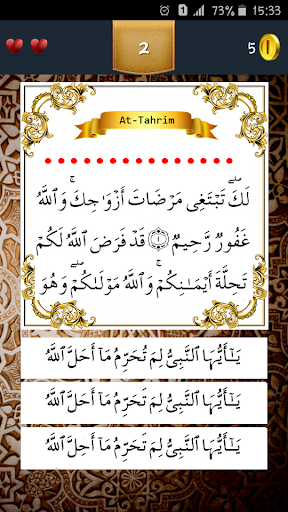 73% 15:33
2
5
At-Tahrim
لَكَ ۖ تَبْتَغِى مَرْضَاتَ أَزْوَٰجِكَ ۚ وَٱللَّهُ
غَفُورٌ رَّحِيمٌ ١ قَدْ فَرَضَ ٱللَّهُ لَكُمْ
تَحِلَّةَ أَيْمَـٰنِكُمْ ۚ وَٱللَّهُ مَوْلَىٰكُمْ ۖ وَهُوَ
يَـٰٓأَيُّهَا ٱلنَّبِىُّ لِمَ تُحَرِّمُ مَآ أَحَلَّ ٱللَّهُ
يَـٰٓأَيُّهَا ٱلنَّبِىُّ لِمَ تَحَرِّمُ مَآ أَحَلَّ ٱللَّهُ
يَـٰٓأَيُّهَا ٱلنَّبِىُّ لِمَ تَحَرِّمُ مَآ أَحِلَّ ٱللَّهُ